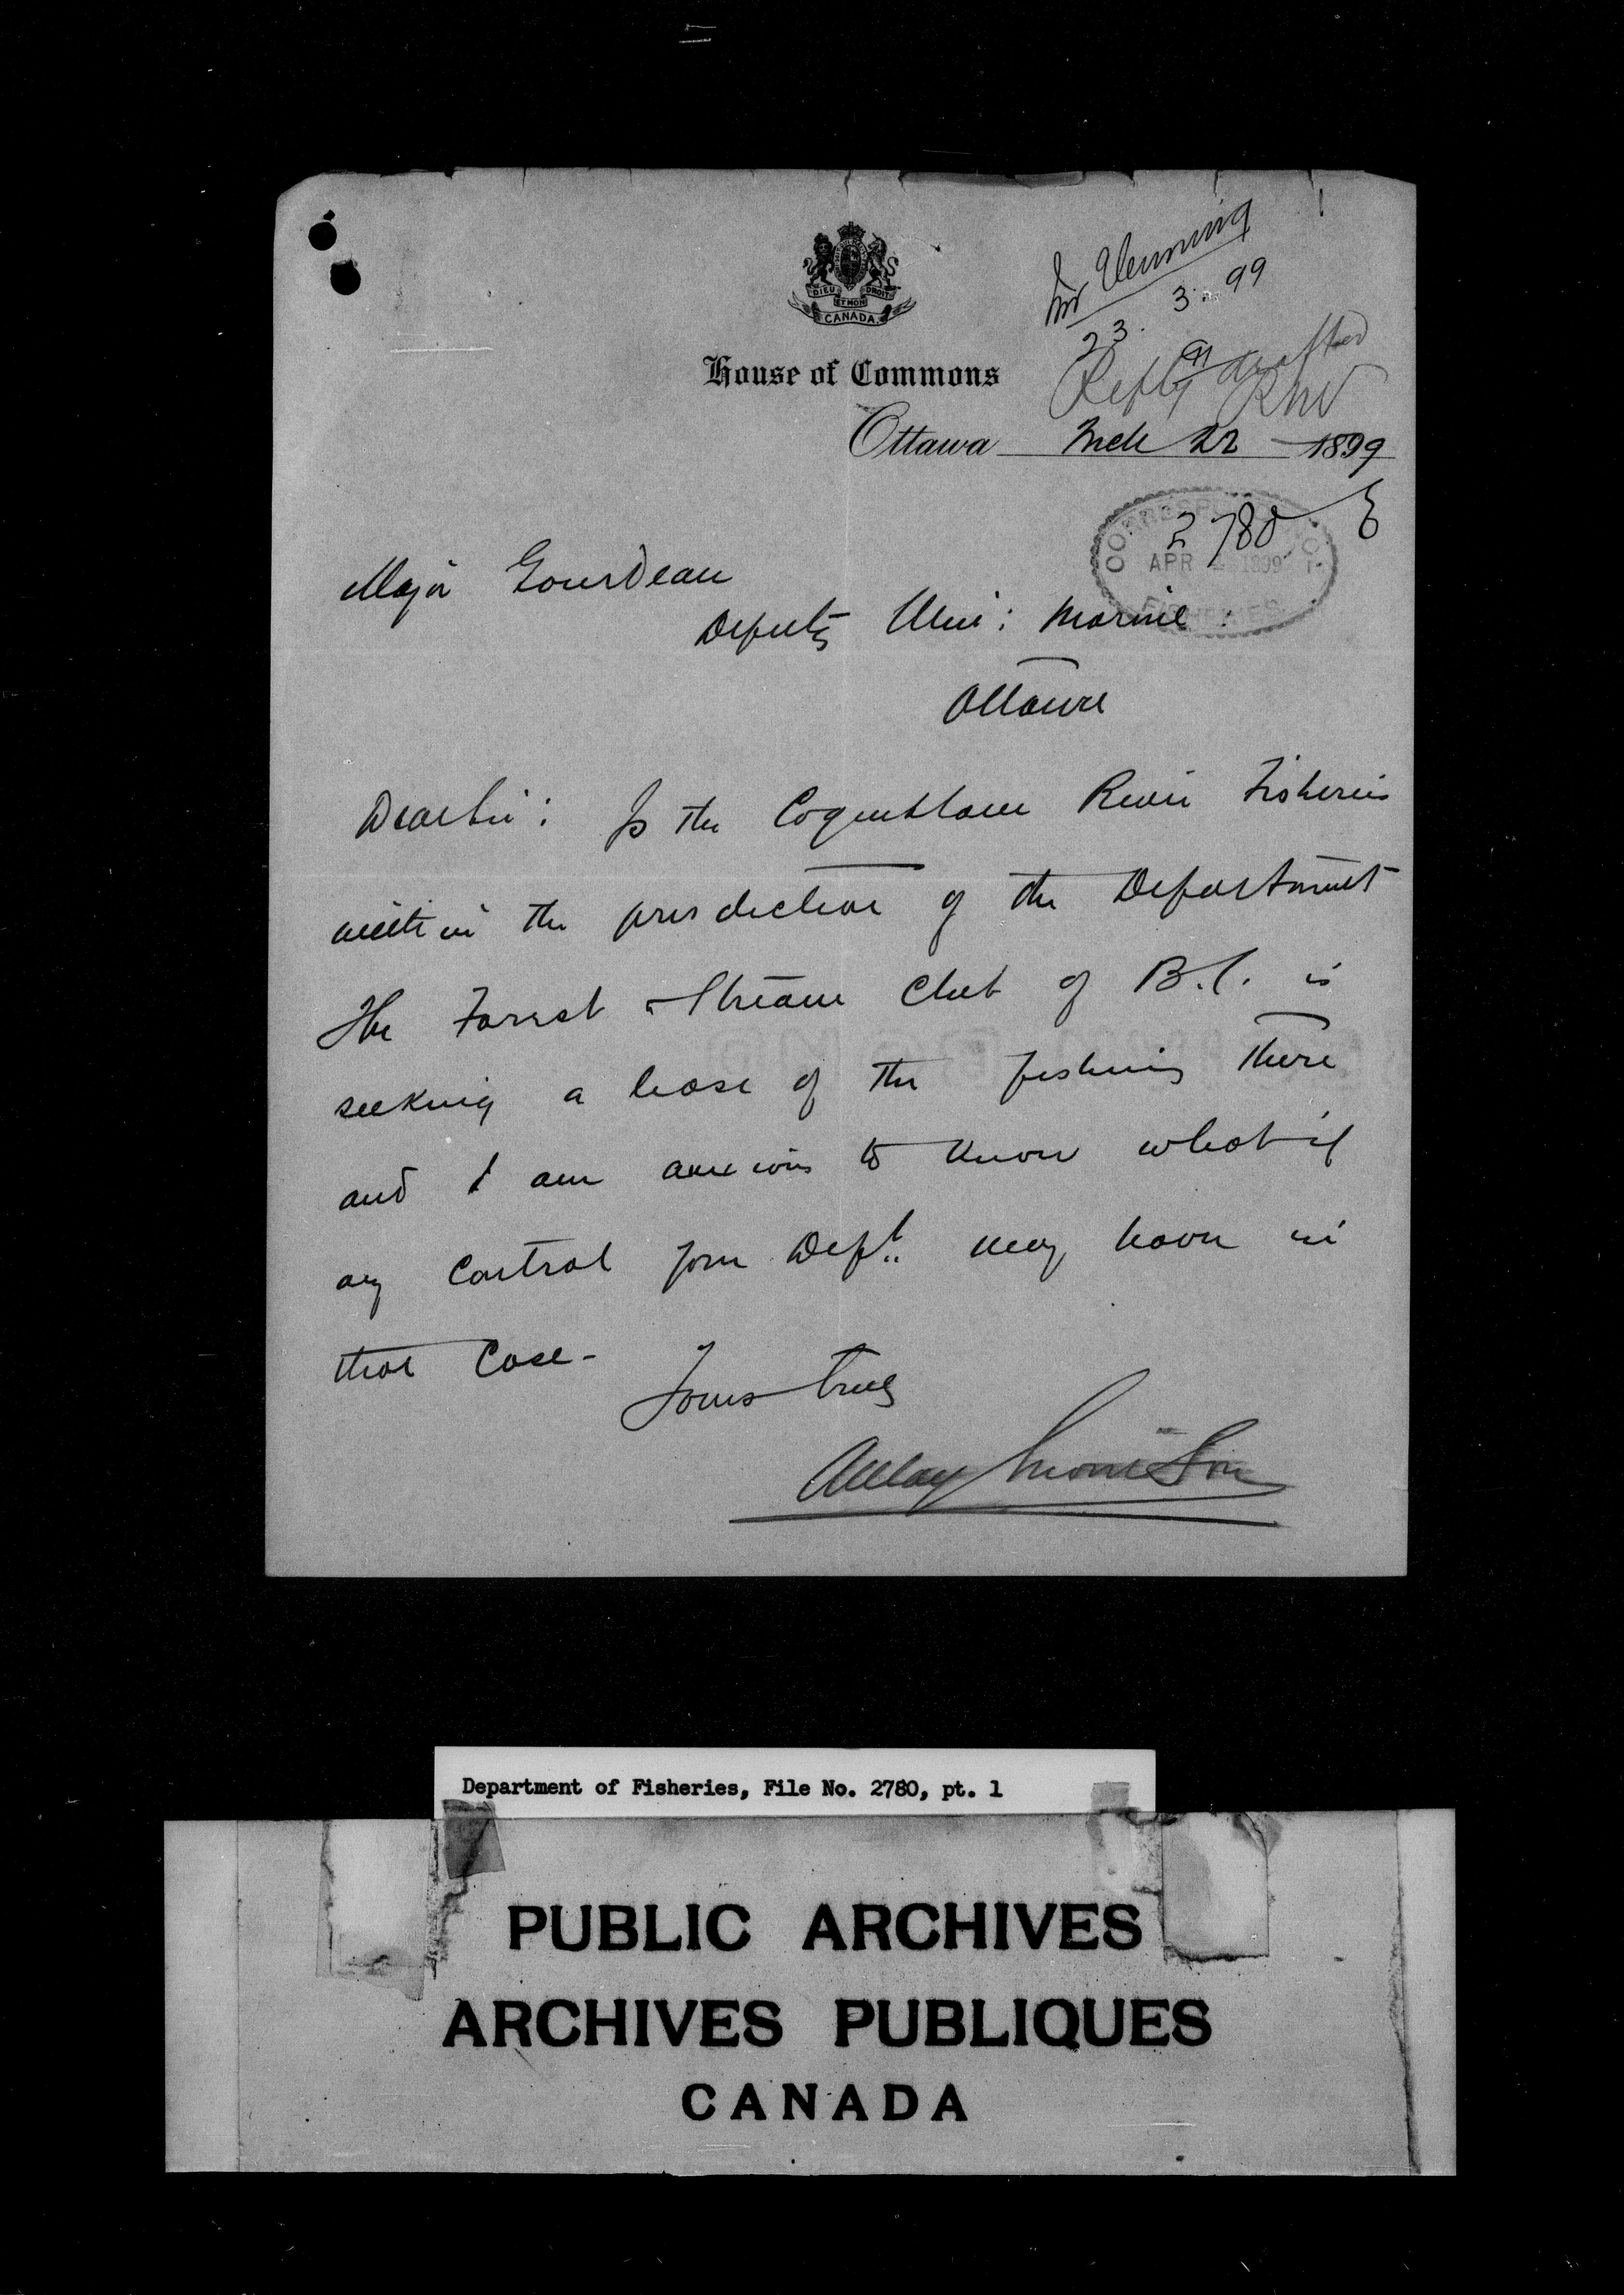 DIEU ET MON DROIT
CANADA
House of Commons
Mr Venning
23. 3. 99
Reply drafted
RNV
Ottawa Mch 22 1899
2780 E
CORRESP
APR 1899
FISHERIES
Major Gourdeau
Deputy Min: Marine.
Ottawa
Dear Sir: Is the Coquitlam River Fisheries
within the jurisdiction of the Department
The Forest & Stream Club of B.C. is
seeking a lease of the fishing there
and I am anxious to know what if
any control your Dept. may have in
that case-
Yours truly
Aulay Morrison
Department of Fisheries, File No. 2780, pt. 1
PUBLIC ARCHIVES
ARCHIVES PUBLIQUES
CANADA